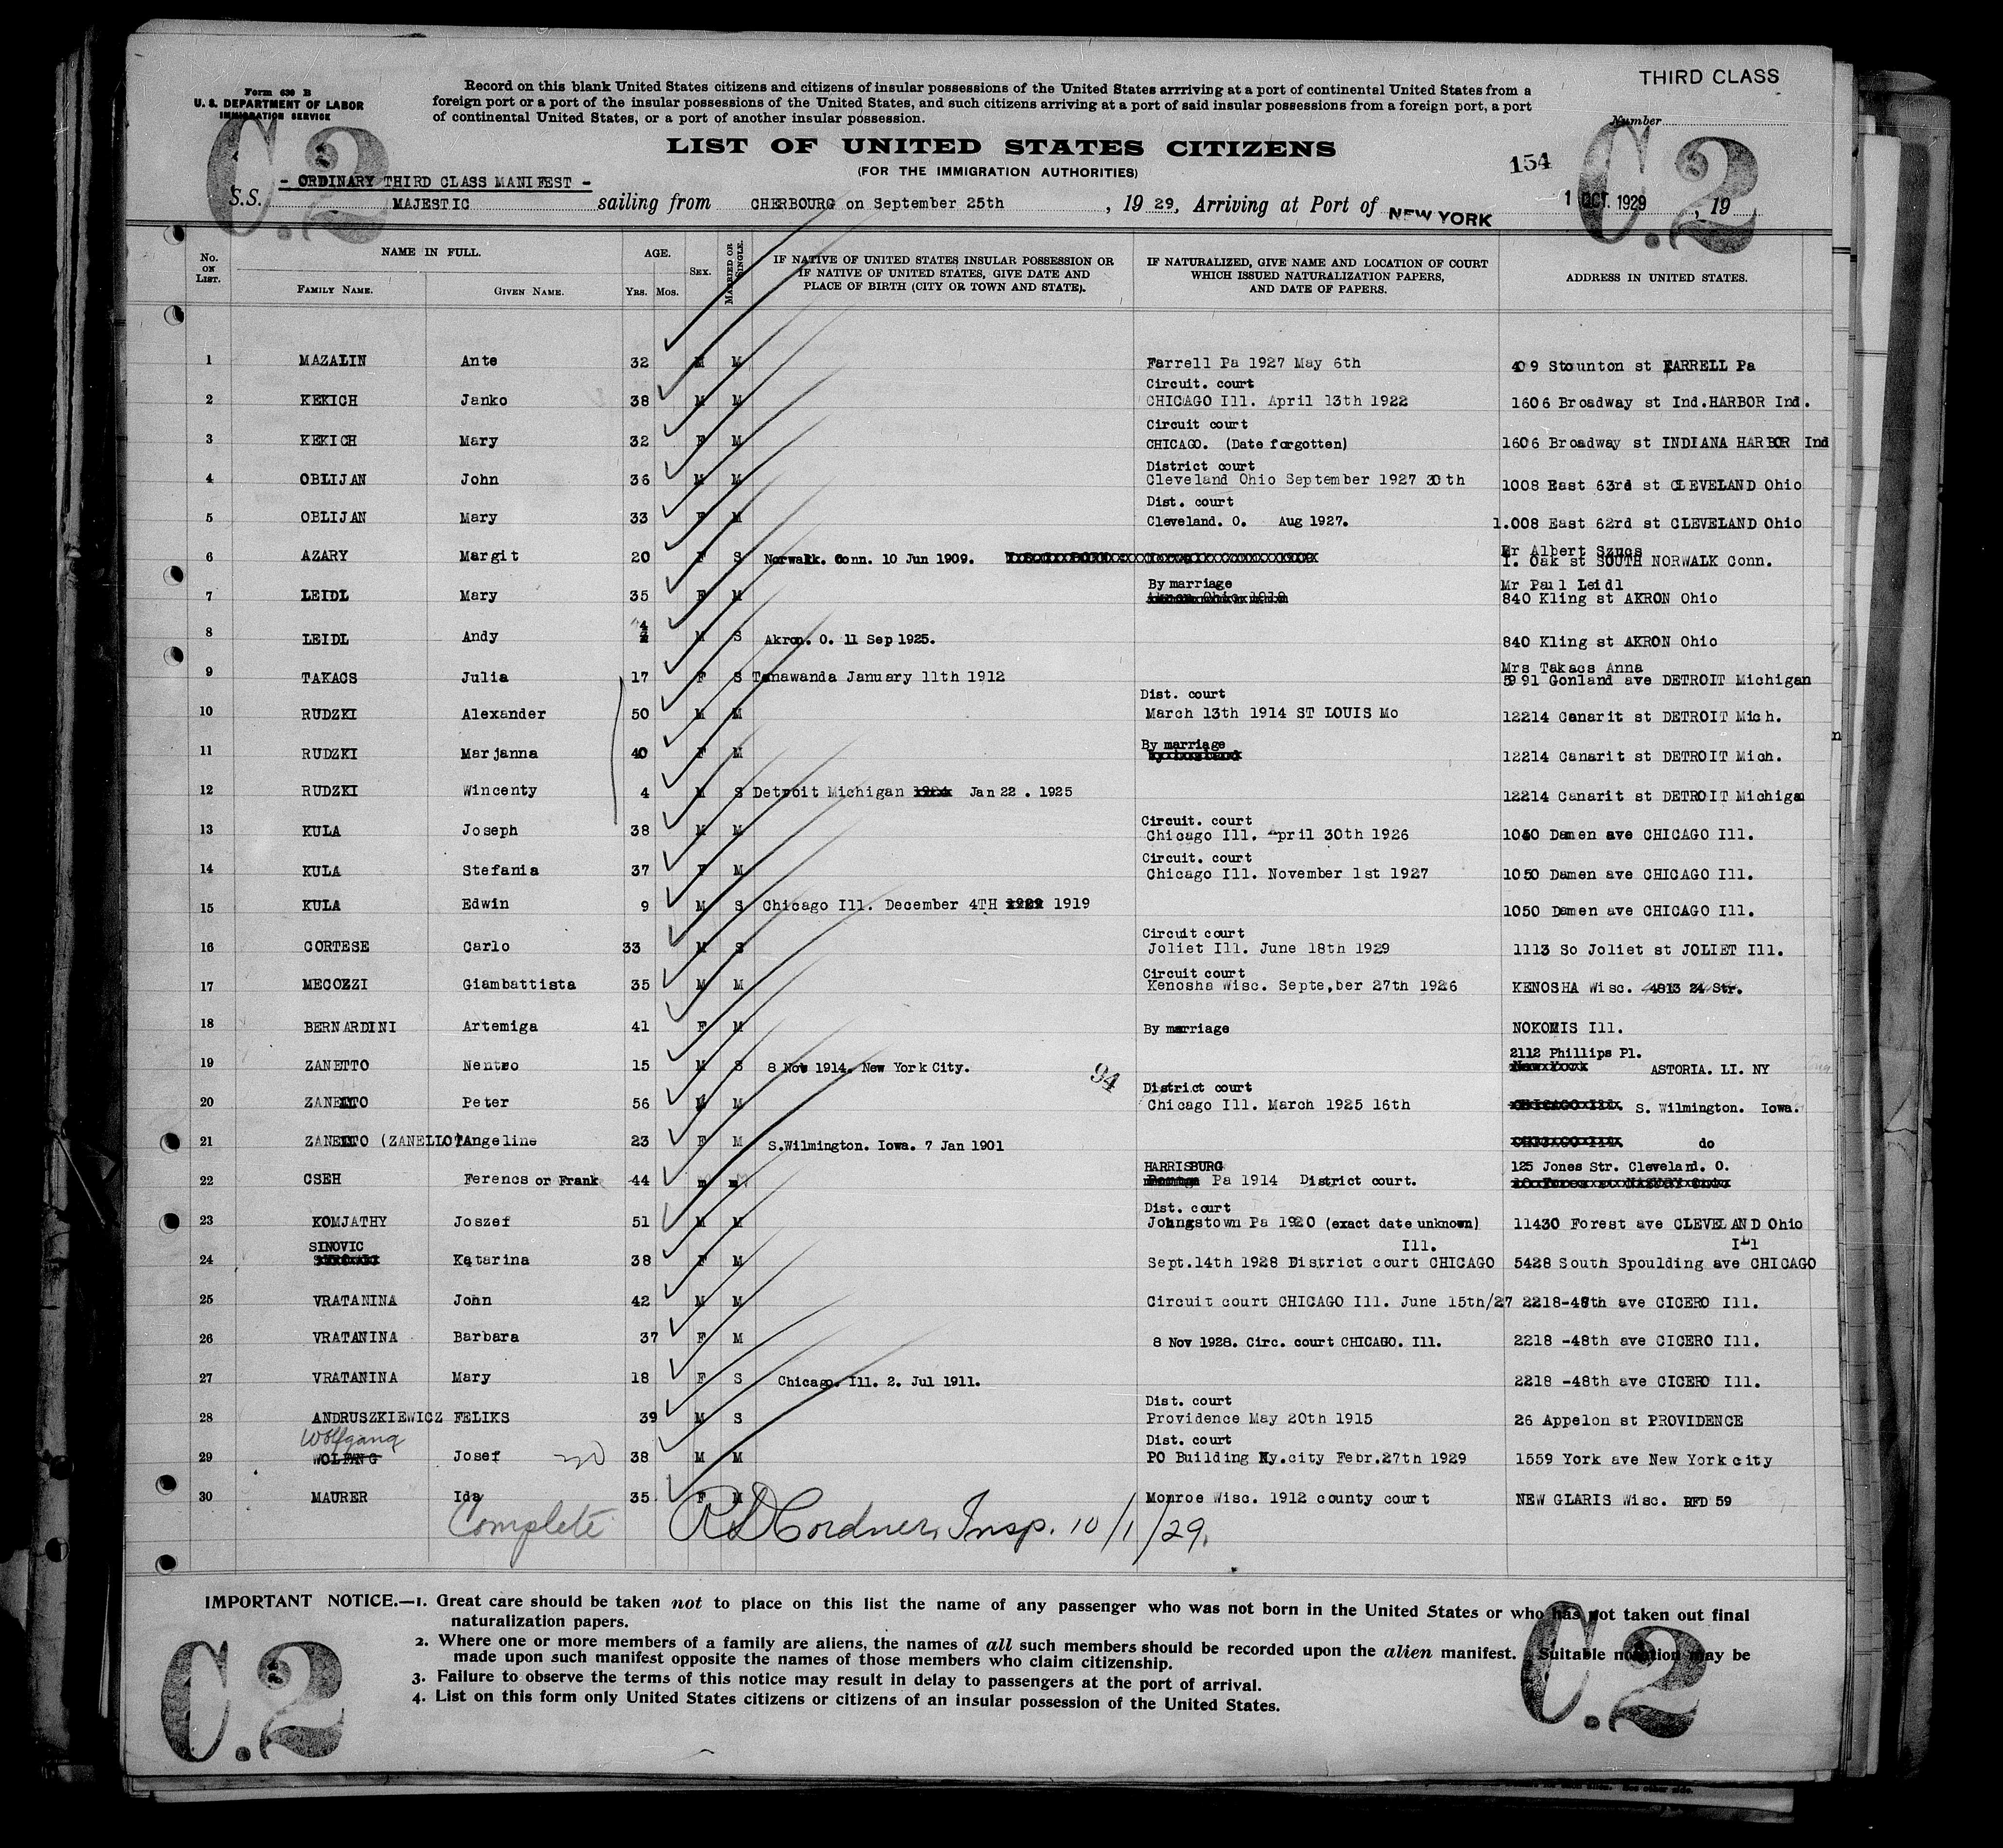 THIRD CLASS
Form 630 B
U. S. DEPARTMENT OF LABOR
IMMIGRATION SERVICE
Record on this blank United States citizens and citizens of insular possessions of the United States arrriving at a port of continental United States from a
foreign port or a port of the insular possessions of the United States, and such citizens arriving at a port of said insular possessions from a foreign port, a port
of continental United States, or a port of another insular possession.
Number
C.2
C.2
LIST OF UNITED STATES CITIZENS
(FOR THE IMMIGRATION AUTHORITIES)
154
- ORDINARY THIRD CLASS MANIFEST -
S.S. MAJESTIC sailing from CHERBOURG on September 25th, 19 29, Arriving at Port of NEW YORK 1 OCT. 1929, 19
No. ON LIST. NAME IN FULL. FAMILY NAME. GIVEN NAME. AGE. Yrs. Mos. SEX. MARRIED OR SINGLE. IF NATIVE OF UNITED STATES INSULAR POSSESSION OR IF NATIVE OF UNITED STATES, GIVE DATE AND PLACE OF BIRTH (CITY OR TOWN AND STATE). IF NATURALIZED, GIVE NAME AND LOCATION OF COURT WHICH ISSUED NATURALIZATION PAPERS, AND DATE OF PAPERS. ADDRESS IN UNITED STATES.
1 MAZALIN Ante 32 M M Farrell Pa 1927 May 6th 409 Stounton st FARRELL Pa
Circuit. court
2 KEKICH Janko 38 M M CHICAGO Ill. April 13th 1922 1606 Broadway st Ind.HARBOR Ind.
Circuit court
3 KEKICH Mary 32 F M CHICAGO. (Date forgotten) 1606 Broadway st INDIANA HARBOR Ind
District court
4 OBLIJAN John 36 M M Cleveland Ohio September 1927 30th 1008 East 63rd st CLEVELAND Ohio
Dist. court
5 OBLIJAN Mary 33 F M Cleveland. O. Aug 1927. 1.008 East 62rd st CLEVELAND Ohio
Mr Albert Szucs
6 AZARY Margit 20 F S Norwalk. Conn. 10 Jun 1909. 1. Oak st SOUTH NORWALK Conn.
By marriage Mr Paul Leidl
7 LEIDL Mary 35 F M Akron Ohio 1918 840 Kling st AKRON Ohio
8 LEIDL Andy 4 M S Akron. O. 11 Sep 1925. 840 Kling st AKRON Ohio
Mrs Takacs Anna
9 TAKACS Julia 17 F S Tonawanda January 11th 1912 5991 Gonland ave DETROIT Michigan
Dist. court
10 RUDZKI Alexander 50 M M March 13th 1914 ST LOUIS Mo 12214 Canarit st DETROIT Mich.
By marriage
11 RUDZKI Marjanna 40 F M 12214 Canarit st DETROIT Mich.
12 RUDZKI Wincenty 4 M S Detroit Michigan 1924 Jan 22 . 1925 12214 Canarit st DETROIT Michigan
Circuit. court
13 KULA Joseph 38 M M Chicago Ill. April 30th 1926 1050 Damen ave CHICAGO Ill.
Circuit. court
14 KULA Stefania 37 F M Chicago Ill. November 1st 1927 1050 Damen ave CHICAGO Ill.
15 KULA Edwin 9 M S Chicago Ill. December 4TH 1929 1919 1050 Damen ave CHICAGO Ill.
Circuit court
16 CORTESE Carlo 33 M S Joliet Ill. June 18th 1929 1113 So Joliet st JOLIET Ill.
Circuit court
17 MECOZZI Giambattista 35 M M Kenosha Wisc. Septe,ber 27th 1926 KENOSHA Wisc. 4813 24 Str.
18 BERNARDINI Artemiga 41 F M By marriage NOKOMIS Ill.
2112 Phillips Pl.
19 ZANETTO Nentro 15 M S 8 Nov 1914. New York City. New York ASTORIA. LI. NY
94
District court
20 ZANELLO Peter 56 M M Chicago Ill. March 1925 16th CHICAGO Ill. S. Wilmington. Iowa.
21 ZANELLO (ZANELLO) Angeline 23 F M S.Wilmington. Iowa. 7 Jan 1901 CHICAGO Ill. do
HARRISBURG 125 Jones Str. Cleveland. O.
22 CSEH Ferencs or Frank 44 m m Pa 1914 District court.
Dist. court
23 KOMJATHY Joszef 51 M M Johngstown Pa 1920 (exact date unknown) 11430 Forest ave CLEVELAND Ohio
SINOVIC Ill. Ill
24 Katarina 38 F M Sept.14th 1928 District court CHICAGO 5428 South Spoulding ave CHICAGO
25 VRATANINA John 42 M M Circuit court CHICAGO Ill. June 15th/27 2218-48th ave CICERO Ill.
26 VRATANINA Barbara 37 F M 8 Nov 1928. Circ. court CHICAGO. Ill. 2218 -48th ave CICERO Ill.
27 VRATANINA Mary 18 F S Chicago. Ill. 2. Jul 1911. 2218 -48th ave CICERO Ill.
Dist. court
28 ANDRUSZKIEWICZ FELIKS 39 M S Providence May 20th 1915 26 Appelon st PROVIDENCE
Wolfgang Dist. court
29 WOLFANG Josef 38 M M PO Building Ny.city Febr.27th 1929 1559 York ave New York city
30 MAURER Ida 35 F M Monroe Wisc. 1912 county court NEW GLARIS Wisc. RFD 59
Complete RD Cordner, Insp. 10/1/29.
IMPORTANT NOTICE.—1. Great care should be taken not to place on this list the name of any passenger who was not born in the United States or who has not taken out final
naturalization papers.
2. Where one or more members of a family are aliens, the names of all such members should be recorded upon the alien manifest. Suitable notation may be
made upon such manifest opposite the names of those members who claim citizenship.
3. Failure to observe the terms of this notice may result in delay to passengers at the port of arrival.
4. List on this form only United States citizens or citizens of an insular possession of the United States.
C.2
C.2